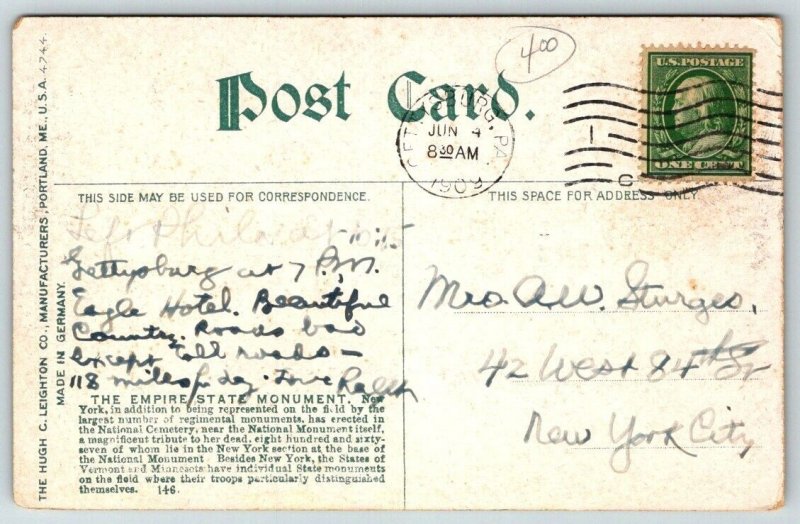 THE HUGH C. LEIGHTON CO., MANUFACTURERS, PORTLAND, ME., U.S.A. 4744.
MADE IN GERMANY.
Post Card.
400
GETTYSBURG, PA.
JUN 4
8 30 AM
1909
U.S. POSTAGE
ONE CENT
THIS SIDE MAY BE USED FOR CORRESPONDENCE.
THIS SPACE FOR ADDRESS ONLY.
Left Philada
Gettysburg at 7 P.M.
Eagle Hotel. Beautiful
Country. Roads bad
except toll roads —
118 miles day. Love Ralph
THE EMPIRE STATE MONUMENT. New
York, in addition to being represented on the field by the
largest number of regimental monuments, has erected in
the National Cemetery, near the National Monument itself,
a magnificent tribute to her dead, eight hundred and sixty-
seven of whom lie in the New York section at the base of
the National Monument. Besides New York, the States of
Vermont and Minnesota have individual State monuments
on the field where their troops particularly distinguished
themselves. 146.
Mrs. A.W. Sturges,
42 West 84th St
New York City